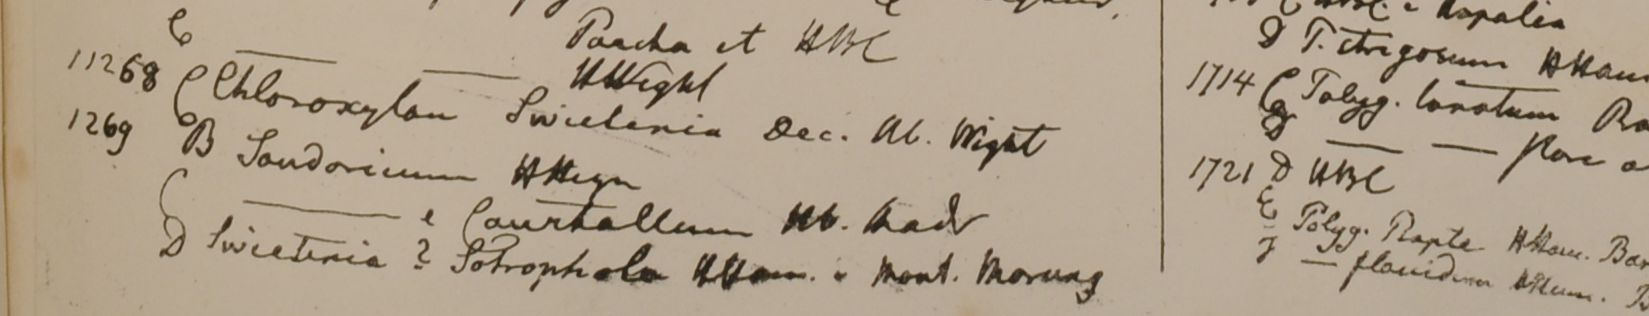 E Pancha et HBC
— — HWight
11268 C Chloroxylon Swietenia Dec. Hb. Wight
1269 B Sandoricum HHeyn
C — e Courtallum Hb. Madr
D Swietenia ? Sotrophola HHam. e Mont. Morung
D T. strigosum HHam
1714 E Polyg. lanatum Ro
g — — flore a
1721 D HBC
E Polyg. Rapte HHam. Bar
g — flavidum HHam.